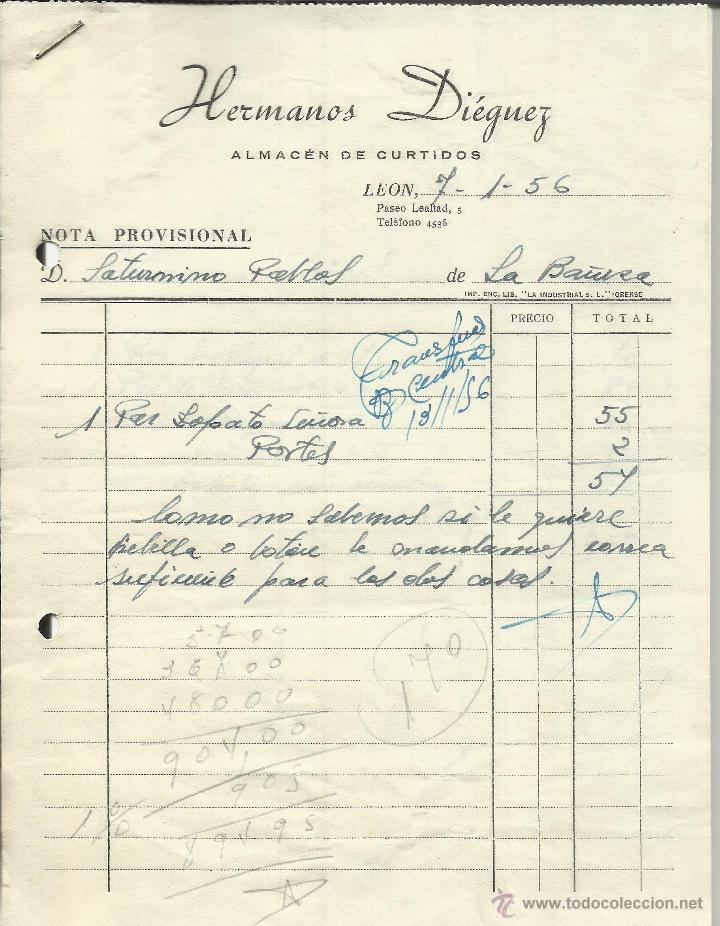 Hermanos Diéguez
ALMACÉN DE CURTIDOS
LEON, 7-1-56
Paseo Lealtad, 5
Teléfono 4598
NOTA PROVISIONAL
D. Saturnino Pablos de La Bañeza
IMP. ENC. LIB. "LA INDUSTRIAL S. L."-ORENSE
PRECIO TOTAL
Central
13/1/56
1 Par Zapato Señora 55
Portes 2
57
Como no sabemos si le quiere
hebilla o botón le mandamos correa
suficiente para las dos cosas.
5700
36700
48000
90400
905
1%
89495
170
www.todocoleccion.net